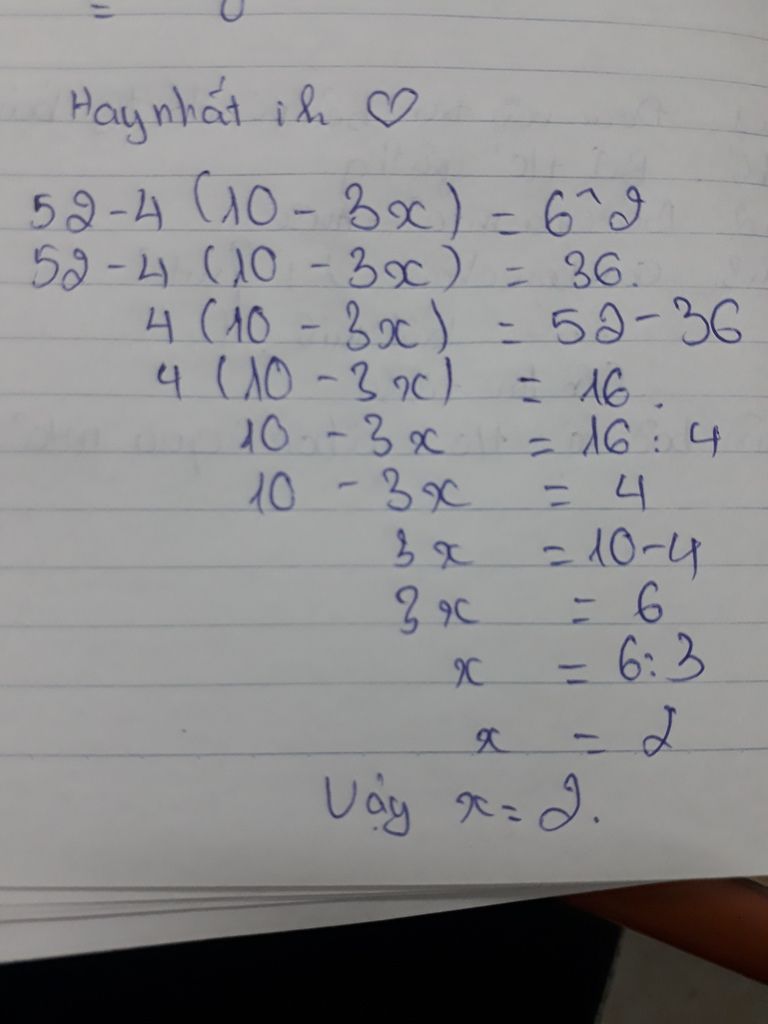 Hay nhất ih ♡
52 - 4 (10 - 3x) = 6^2
52 - 4 (10 - 3x) = 36.
4 (10 - 3x) = 52 - 36
4 (10 - 3x) = 16.
10 - 3x = 16 : 4
10 - 3x = 4
3x = 10 - 4
3x = 6
x = 6 : 3
x = 2
Vậy x = 2.